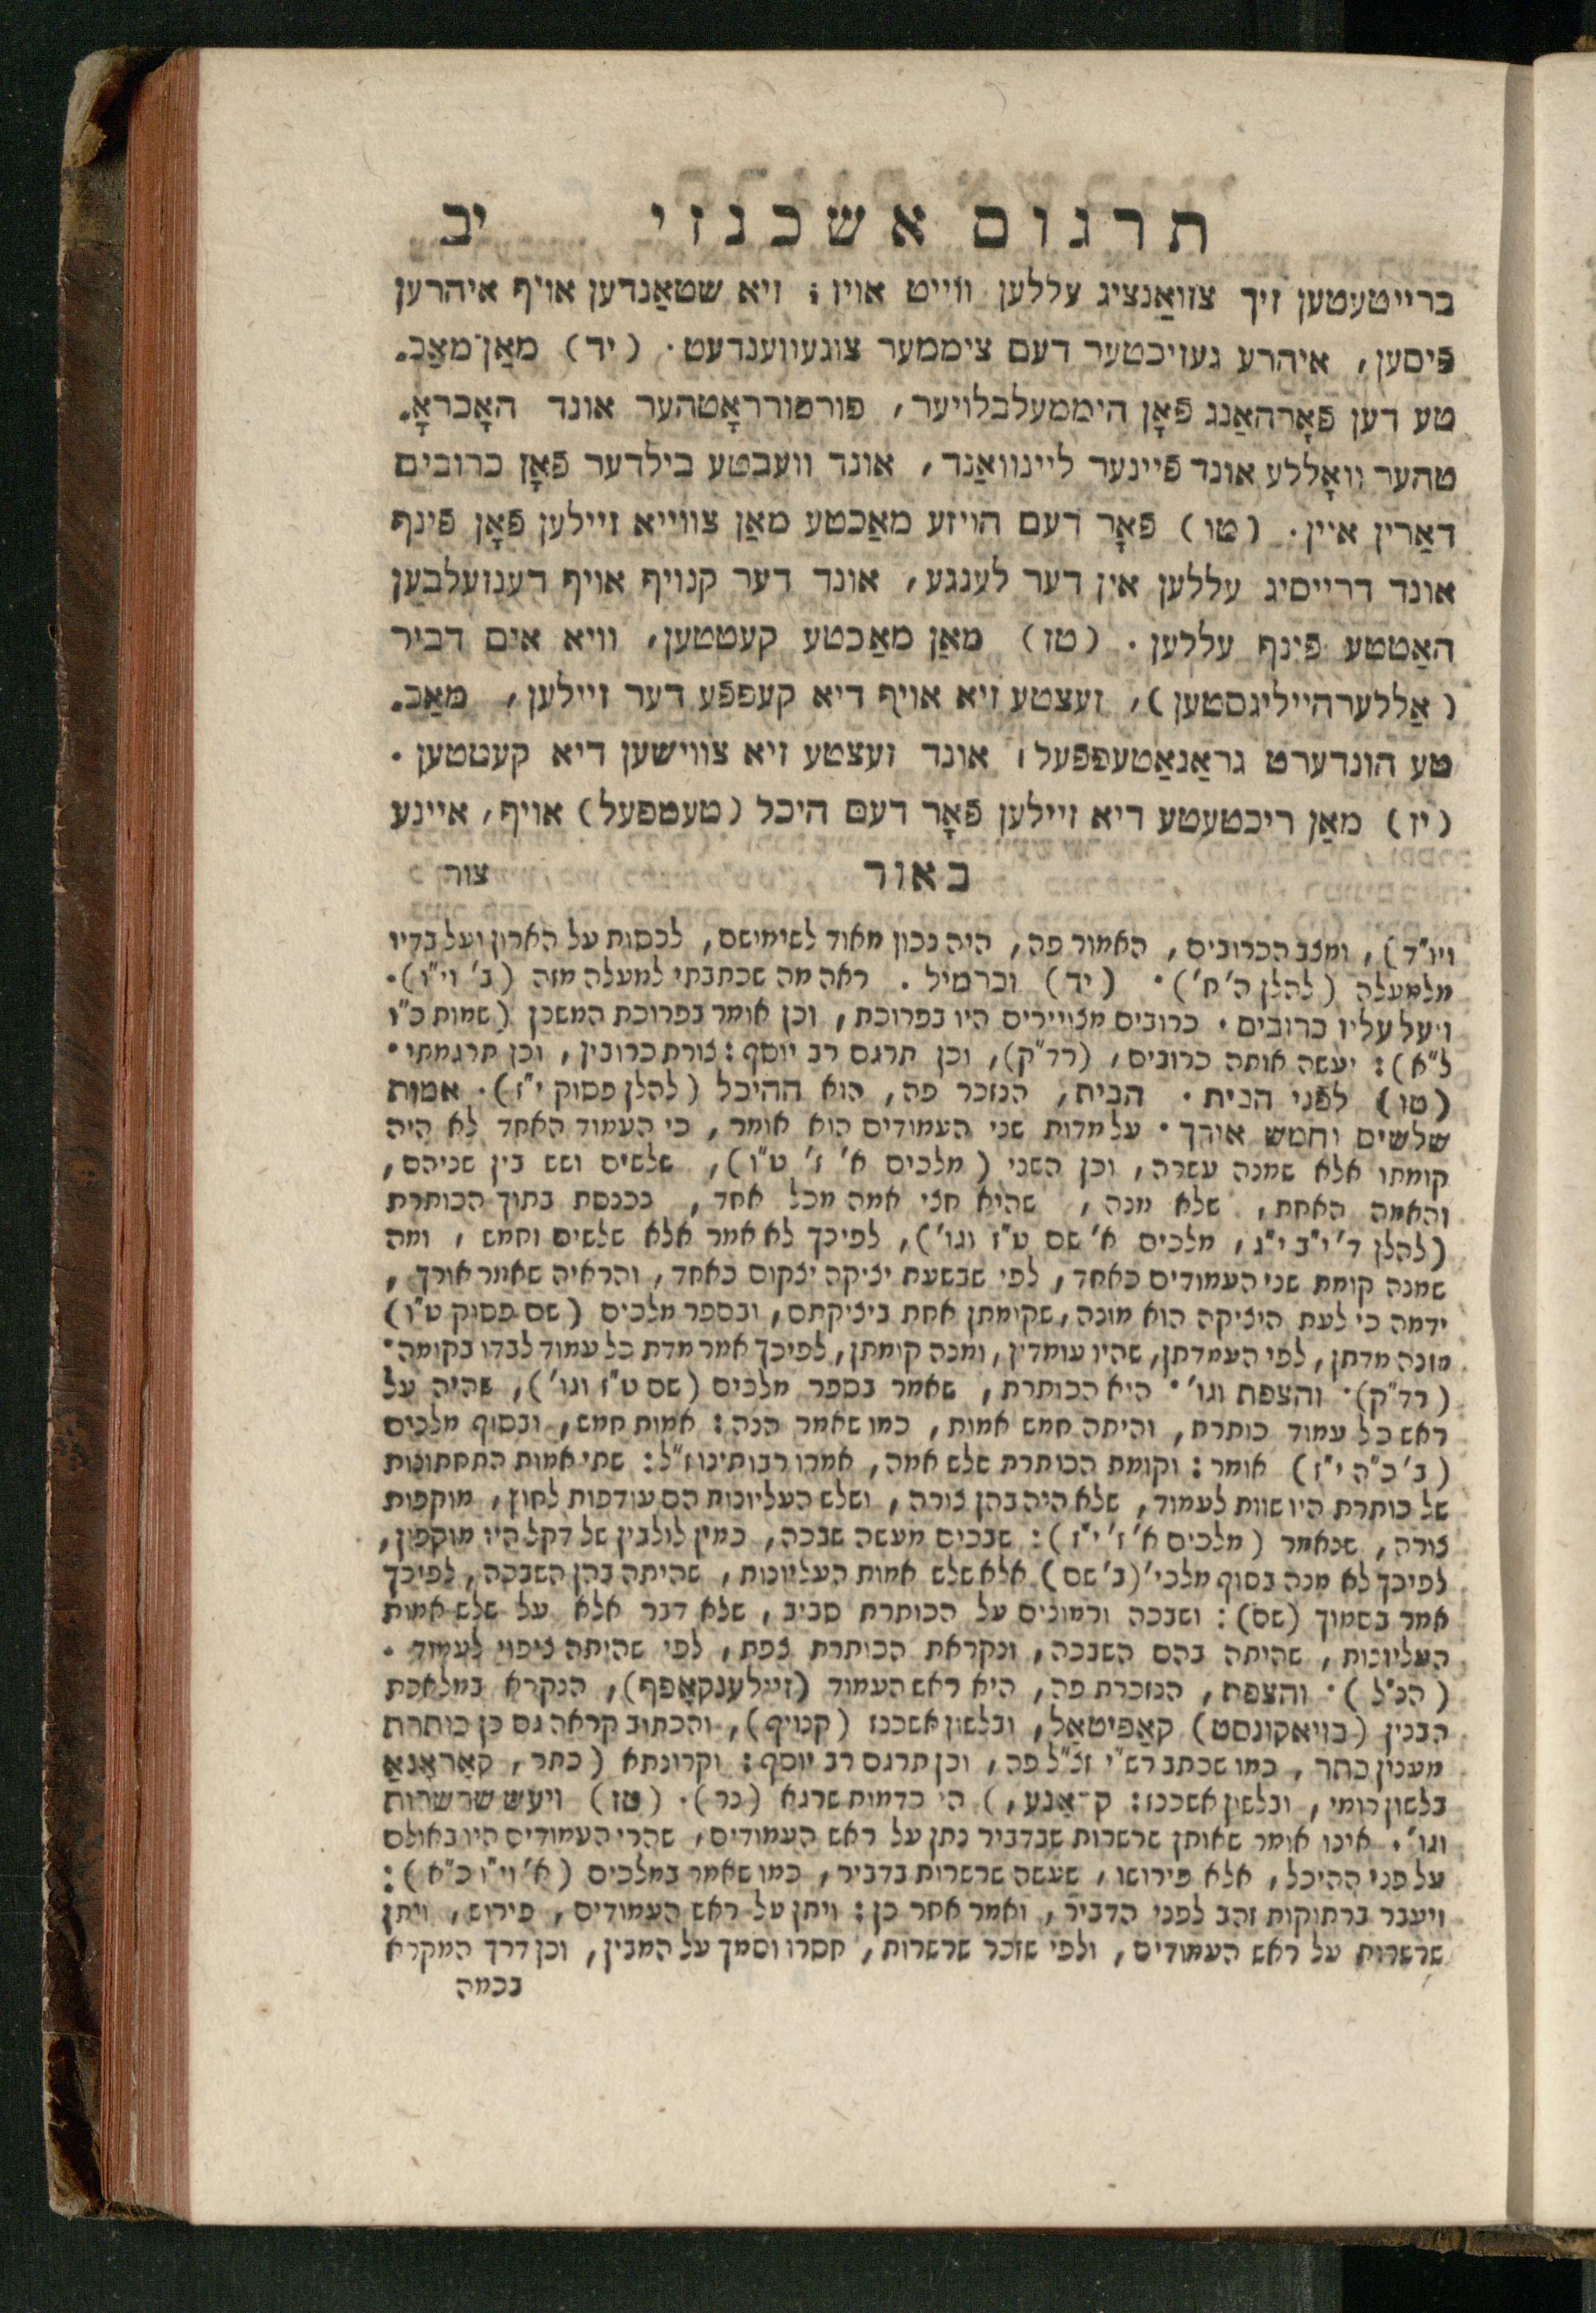 תרגום אשכנזי יב
ברייטעטען זיך צוואַנציג עללען ווייט אויז; זיא שטאַנדען אויף איהרען
פֿיסען, איהרע געזיכטער דעם צימער צוגעווענדעט. (יד) מאַן־מאַכ„
טע דען פֿאָרהאַנג פֿאָן היממעלבלויער, פורפוררראָטהער אונד האָכראָ„
טהער וואָללע אונד פֿיינער ליינוואַנד, אונד וועבטע בילדער פֿאָן כרובים
דאַרין איין. (טו) פֿאָר דעם הויזע מאַכטע מאַן צווייא זיילען פֿאָן פֿינף
אונד דרייסיג עללען אין דער לענגע, אונד דער קנויף אויף דענזעלבען
האַטטע פֿינף עללען. (טז) מאַן מאַכטע קעטטען, וויא אים דביר
(אַללערהייליגסטען), זעצטע זיא אויף דיא קעפפֿע דער זיילען, מאַכ„
טע הונדערט גראַנאַטעפפֿעל, אונד זעצטע זיא צווישען דיא קעטטען.
(יז) מאַן ריכטעטע דיא זיילען פֿאָר דעם היכל (טעמפעל) אויף, איינע
באור צור
ויו"ד), ומצב הכרובים, האמור פה, היה נכון מאוד לשימישם, לכסות על הארון ועל בדיו
מלמעלה (להלן ה'ח'). (יד) וכרמיל. ראה מה שכתבתי למעלה מזה (ב' וי"ו).
ויעל עליו כרובים. כרובים מצויירים היו בפרוכת, וכן אומר בפרוכת המשכן (שמות כ"ו
ל"א): יעשה אותה כרובים, (רד"ק), וכן תרגם רב יוסף: צורת כרובין, וכן תרגמתי.
(טו) לפני הבית. הבית, הנזכר פה, הוא ההיכל (להלן פסוק י"ז). אמות
שלשים וחמש אורך. על מדות שני העמודים הוא אומר, כי העמוד האחד לא היה
קומתו אלא שמנה עשרה, וכן השני (מלכים א' ז' ט"ו), שלשים ושש בין שניהם,
והאמה האחת, שלא מנה, שהיא חצי אמה מכל אחד, נכנסת בתוך הכותרת
(להלן ד'י"ב י"ג, מלכים א' שם ט"ז וגו'), לפיכך לא אמר אלא שלשים וחמש, ומה
שמנה קומת שני העמודים כאחד, לפי שבשעת יציקה יצקום כאחד, והראיה שאמר אורך,
ידמה כי לעת היציקה הוא מונה, שקומתן אחת ביציקתם, ובספר מלכים (שם פסוק ט"ו)
מונה מדתן, לפי העמדתן, שהיו עומדין, ומנה קומתן, לפיכך אמר מדת כל עמוד לבדו בקומה.
(רד"ק). והצפת וגו'. היא הכותרת, שאמר בספר מלכים (שם ט"ז וגו'), שהיה על
ראש כל עמוד כותרת, והיתה חמש אמות, כמו שאמר הנה: אמות חמש, ובסוף מלכים
(ב'כ"ה י"ז) אומר: וקומת הכותרת שלש אמה, אמרו רבותינו ז"ל: שתי אמות התחתונות
של כותרת היו שוות לעמוד, שלא היה בהן צורה, ושלש העליונות הם עודפות לחוץ, מוקפות
צורה, שנאמר (מלכים א'ז'י"ז): שבכים מעשה שבכה, כמין לולבין של דקל היו מוקפין,
לפיכך לא מנה בסוף מלכי' (ב' שם) אלא שלש אמות העליונות, שהיתה בהן השבכה, לפיכך
אמר בסמוך (שם): ושבכה ורמונים על הכותרת סביב, שלא דבר אלא על שלש אמות
העליונות, שהיתה בהם השבכה, ונקראת הכותרת צפת, לפי שהיתה ציפוי לעמוד.
(הנ"ל). והצפת, הנזכרת פה, היא ראש העמוד (זיילענקאָפף), הנקרא במלאכת
הבנין (בויאקונסט) קאַפיטאַל, ובלשון אשכנז (קנויף), והכתוב קראה גם כן כותרת
מענין כתר, כמו שכתב רש"י זצ"ל פה, וכן תרגם רב יוסף: וקרונתא (כתר, קאָראָנאַ
בלשון רומי, ובלשון אשכנז: ק־אָנע,) הי כדמות שרגא (נר). (טז) ויעש שרשרות
וגו'. אינו אומר שאותן שרשרות שבדביר נתן על ראש העמודים, שהרי העמודים היו באולם
על פני ההיכל, אלא פירושו, שעשה שרשרות בדביר, כמו שאמר במלכים (א' וי"ו כ"א):
ויעבר ברתוקות זהב לפני הדביר, ואמר אחר כן: ויתן על ראש העמודים, פירוש, ויתן
שרשרות על ראש העמודים, ולפי שזכר שרשרות, חסרו וסמך על המבין, וכן דרך המקרא
בכמה